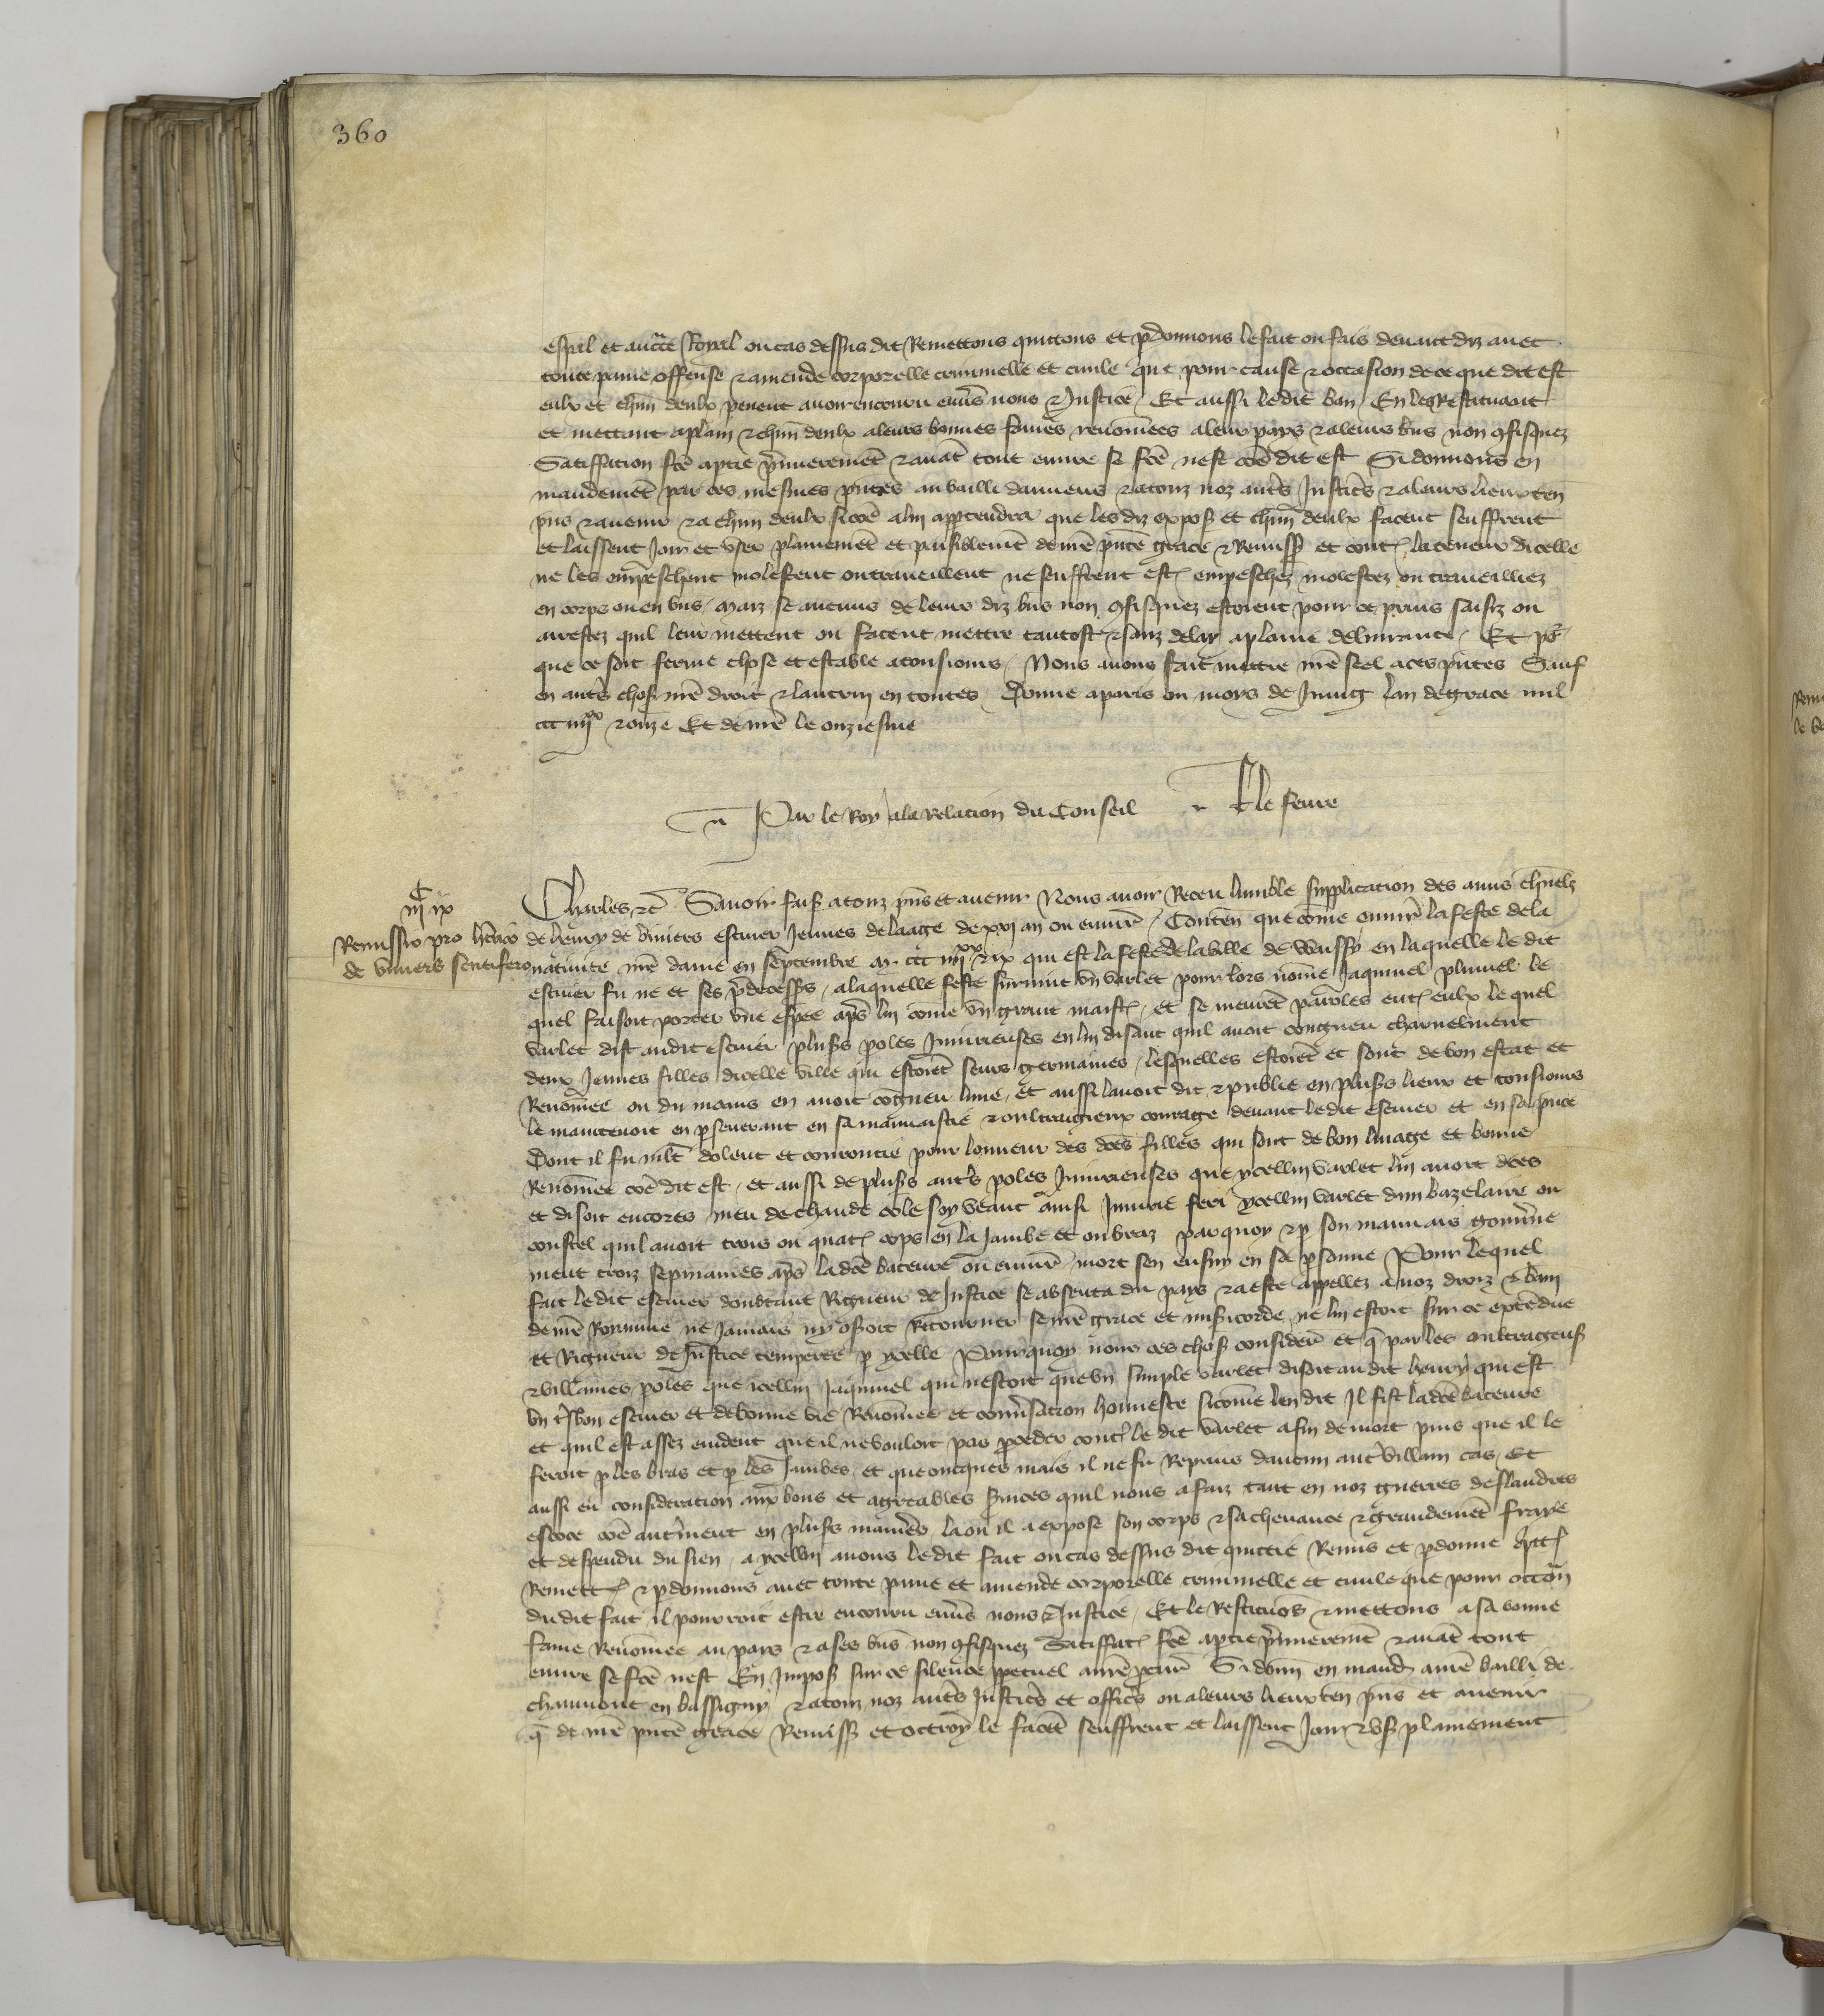 360
espal et auctē Royal ou cas dessus dit Remettons quittons et pdonnons le fait ou fais devant diz avec
toute peine offense & amende corporelle criminelle et civile que pour cause & occasion de ce que dit est
eulx et chūn deulx pevent avoir encouru envs nous & Justice / Et aussi ledit ban / En les Restituant
et mettant aplain & chūn deulx a leurs bonnes fames renomees a leur pays & a leurs bns non 9fisquez
Satiffacion fcē aptie pmierement & avāt tout euvre se fcē nest cōe dit est Si donnons en
mandemēt par ces mesmes pntes au bailli damiens & a touz noz auts Justices & a leurs lieuxten
pns & avenir & a chūn deulx si cōe a lui apptendra que les diz expos et chūn deulx facent seuffrent
et laissent Joir et user plainemēt et paisiblemt de nrē pntē grace & Remiss et contre la teneur dicelle
ne les empeschent molestent ou traveillent ne seuffrent estre empeschez molestez ou travailliez
en corps ou en bns / Maiz se aucuns de leurs diz bns non 9fisquez estoient pour ce prins saisiz ou
arrestez quil leur mettent ou facent mettre tantost & sanz delay a plaine delivrance / Et pō
que ce soit ferme chose et estable a tousiours / Nous avons fait mettre nrē seel a ces pntes Sauf
en auts choses nrē droit & lautrui en toutes Donne a paris ou moys de Juing lan de grace mil
ccc iiii xx & onze Et de nrē le onziesme
Par le Roy a la relacion du Conseil le fevre
iii C ix
Remissio pro henrico
de vivers scutifero
Charles &c Savoir fais a touz pns et avenir Nous avoir Receu lumble supplicacion des amis chnelz
de henry de viviers escuier Jeunes de laage de xxi an ou envir / Conten que cōme environ la feste de la
nativite nrē dame en septembre M ccc iiii xx & ix qui est la feste de la ville de Waissy en laquelle le dit
escuier fu ne et ses pdecess / a laquelle feste survint un varlet pour lors nōme Jaquinel plumel le
quel faisoit porter une espee aps lui cōme un grant maistre / et se meurēt paroles entre eulx le quel
varlet dist audit escuier pluss poles Iniurieuses en lui disant quil avoit congneu charnelment
deux Jeunes filles dicelle ville qui estoiēt seurs germaines / lesquelles estoiēt et sont de bon estat et
Renōmee ou du moins en avoit cōgneu lune / et aussi lavoit dit & publie en pluss lieux et tousiours
le maintenoit en pseverant en sa mauvaistie & oultrageux courage devant ledit escuier et en sa pnce
Dont il fu mlt dolent et courroucie pour lonneur des dcēs filles qui sont de bon linage et bonne
Renōmee cōe dit est / et aussi de pluss auts poles Iniurieuses que ycellui varlet lui avoit dces
et disoit encores meu de chaude cole soy veant ainsi Iniurie feri ycellui varlet dun bazelaire ou
coustel quil avoit trois ou quatre cops en la Jambe et ou braz parquoy & p son mauvais gouvne
ment troiz sepmaines aps la dcē bateure ou envir / mort sen ensuy en sa psonne Pour lequel
fait ledit escuier doubtant Rigueur de Justice se absenta du pays & a este appellez a noz droiz & bani
de nrē Royaume ne Jamais ny oseroit Retourner se nrē grace et misicorde ne lui estoit sur ce extendue
et Rigueur de Justice temperee p ycelle Pourquoy nous ces choses consider et q par les oultrageus
& villaines poles que icellui Jaquinel qui nestoit que un simple varlet disoit au dit henry qui est
un trsbon escuier et de bonne vie Renōmee et convsacion honneste sicōme len dit Il fist la dcē bateure
et quil est assez evident que il ne vouloit pas pceder contre le dit varlet a fin de mort puis que il le
feroit p les bras et p les Jambes / et que oncques mais il ne fu Reprins daucun autre villain cas / Et
aussi en consideracion aux bons et agreables svices quil nous a faiz tant en noz guerres de flandres
escoce cōe autrement en pluss maniers la ou il a expose son corps & sa chevance & grandemēt fraye
et despendu du sien / a ycellui avons le dit fait ou cas dessus dit quictie Remis et pdonne quittons
Remettons & pdonnons avec toute peine et amende corporelle criminelle et civile que pour occōn
du dit fait il pourroit estre encouru envs nous & Justice / Et le Restituōs & mettons a sa bonne
fame Renōmee au pays & a ses bns non 9fisquez Satiffacion fcē aptie pmieremt & avāt tout
euvre se fcē nest En Impos sur ce silence ppetuel a nrē pcur Si donn en mand a nrē bailli de
chaumont en bassigny & a touz noz auts Justices et offics ou a leurs lieuxten pns et avenir
q de nrē pntē grace Remiss et octroy le facēt seuffrent et laissent Joir & user plainement